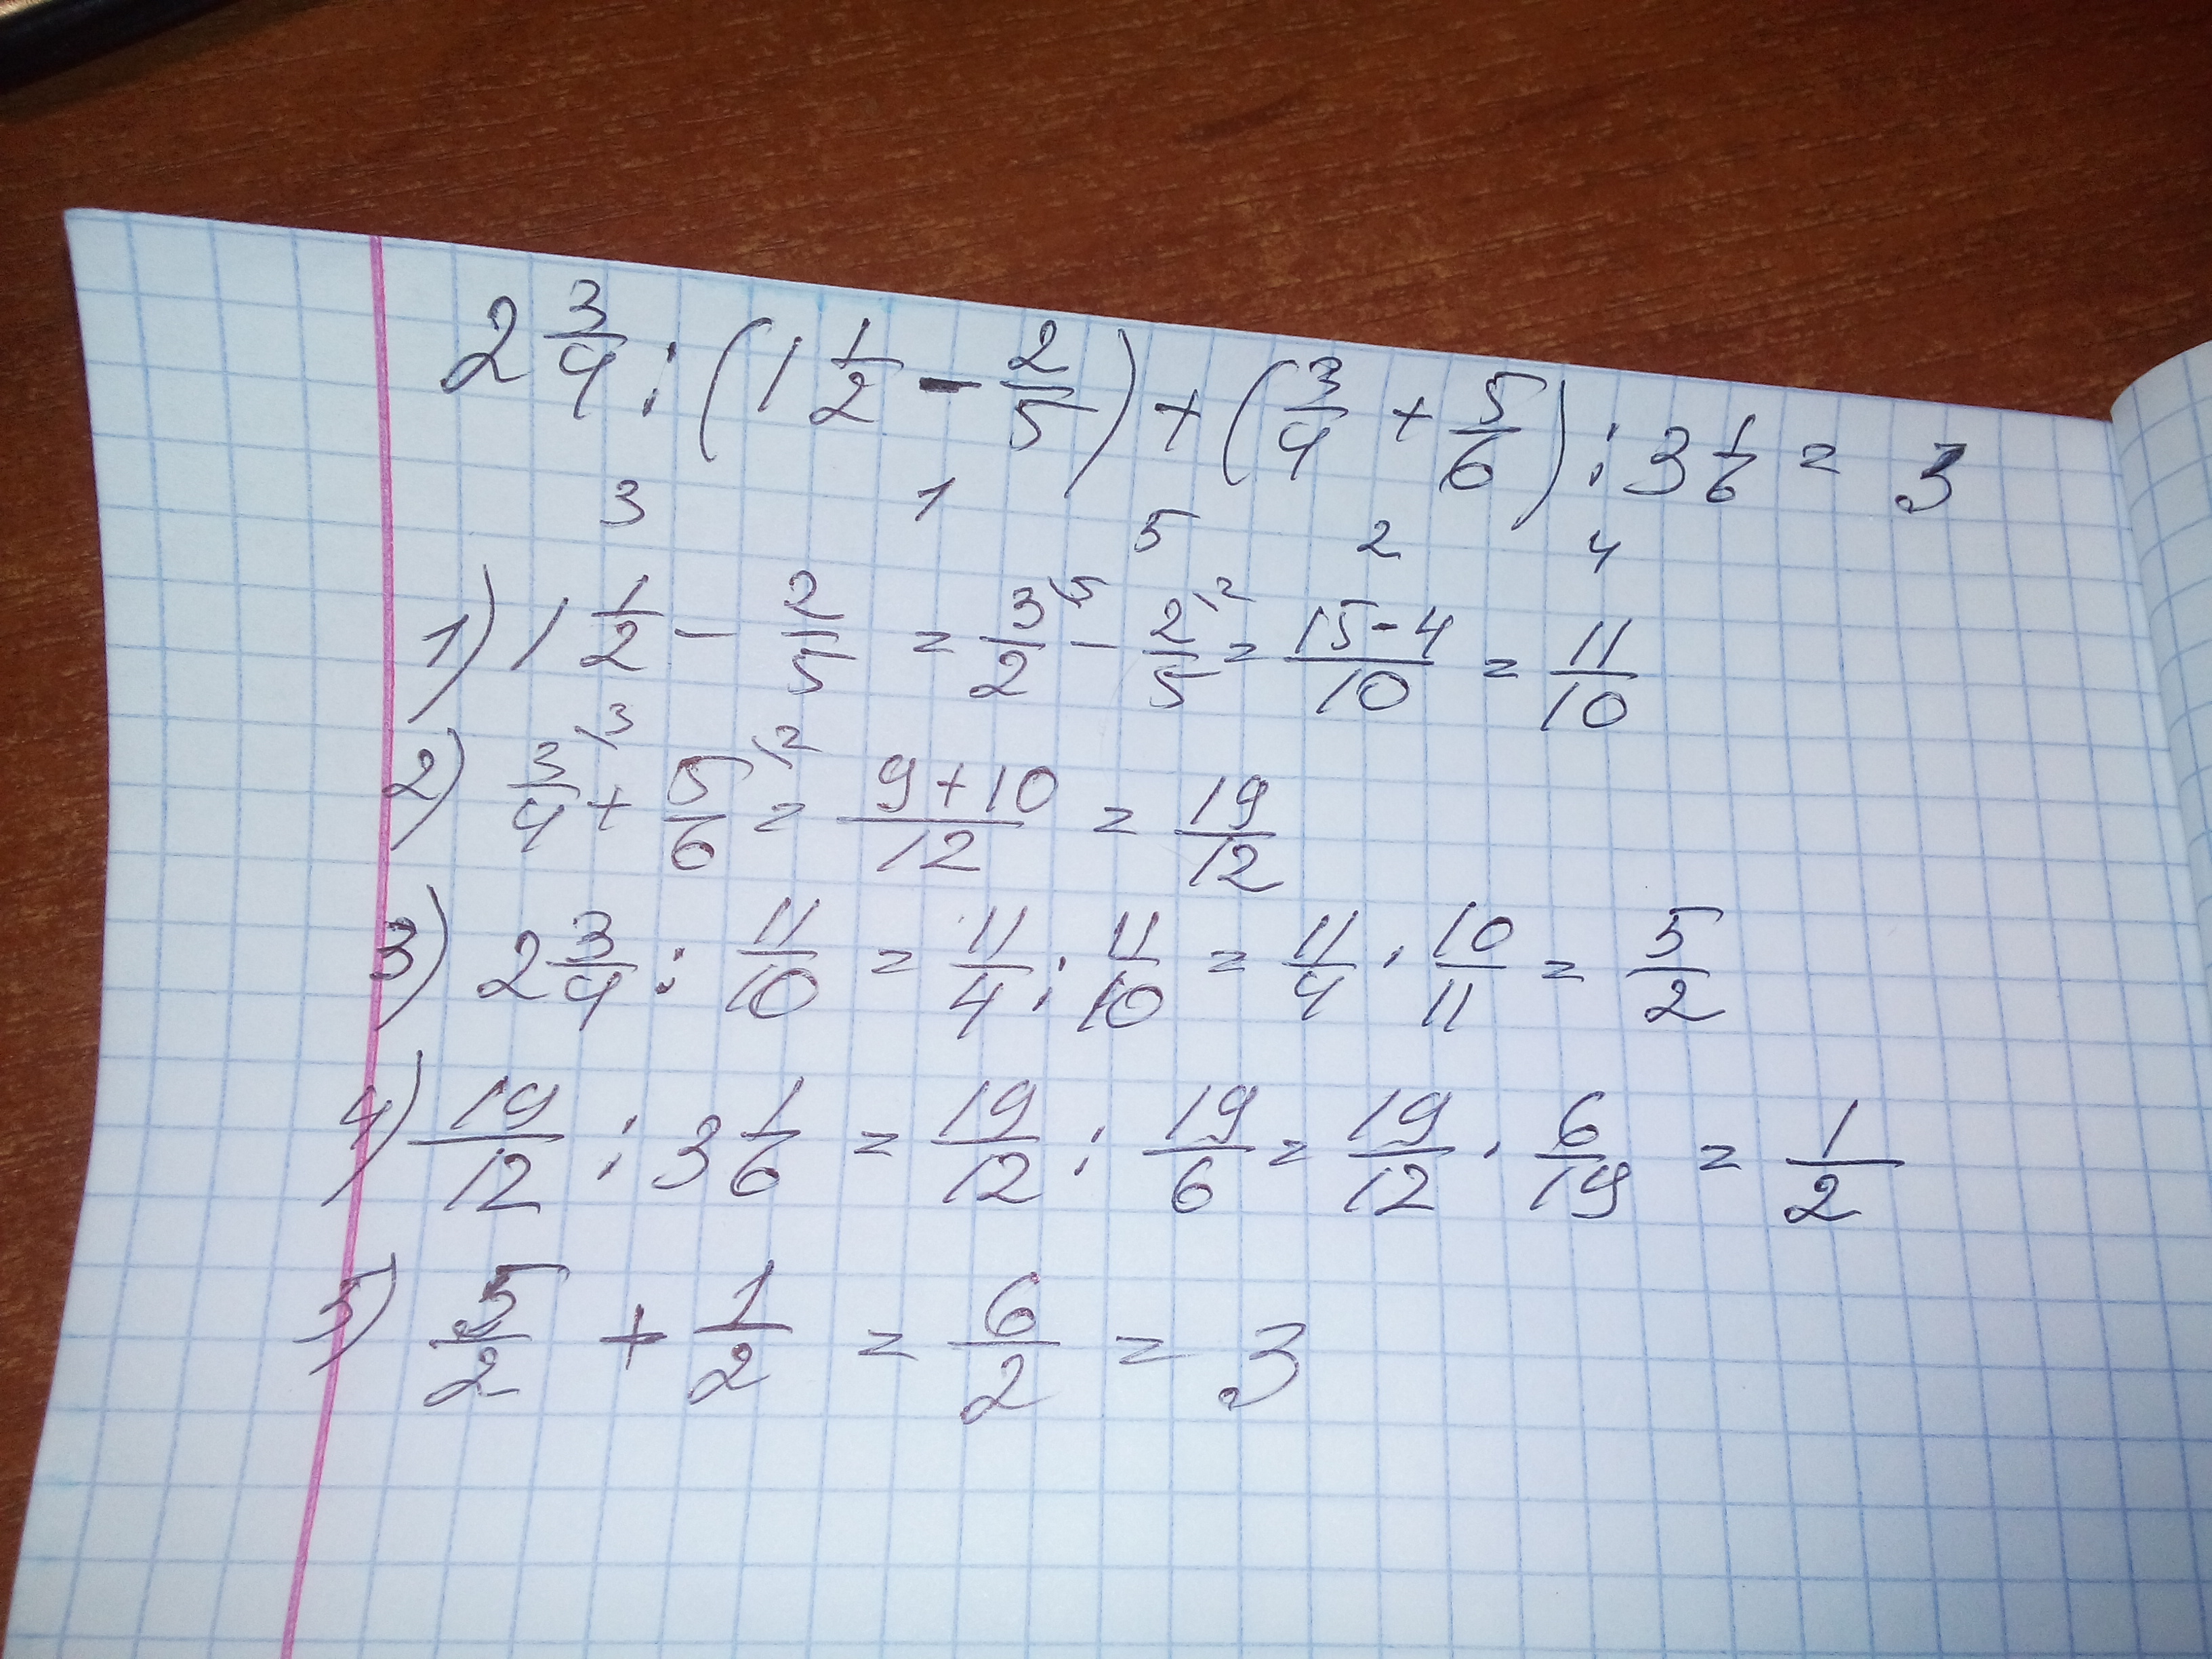 2 3/4 : (1 1/2 - 2/5) + (3/4 + 5/6) : 3 1/6 = 3
3 1 5 2 4
1) 1 1/2 - 2/5 = 3\5/2 - 2\2/5 = 15-4/10 = 11/10
2) 3\3/4 + 5\2/6 = 9+10/12 = 19/12
3) 2 3/4 : 11/10 = 11/4 : 11/10 = 11/4 · 10/11 = 5/2
4) 19/12 : 3 1/6 = 19/12 : 19/6 = 19/12 · 6/19 = 1/2
5) 5/2 + 1/2 = 6/2 = 3